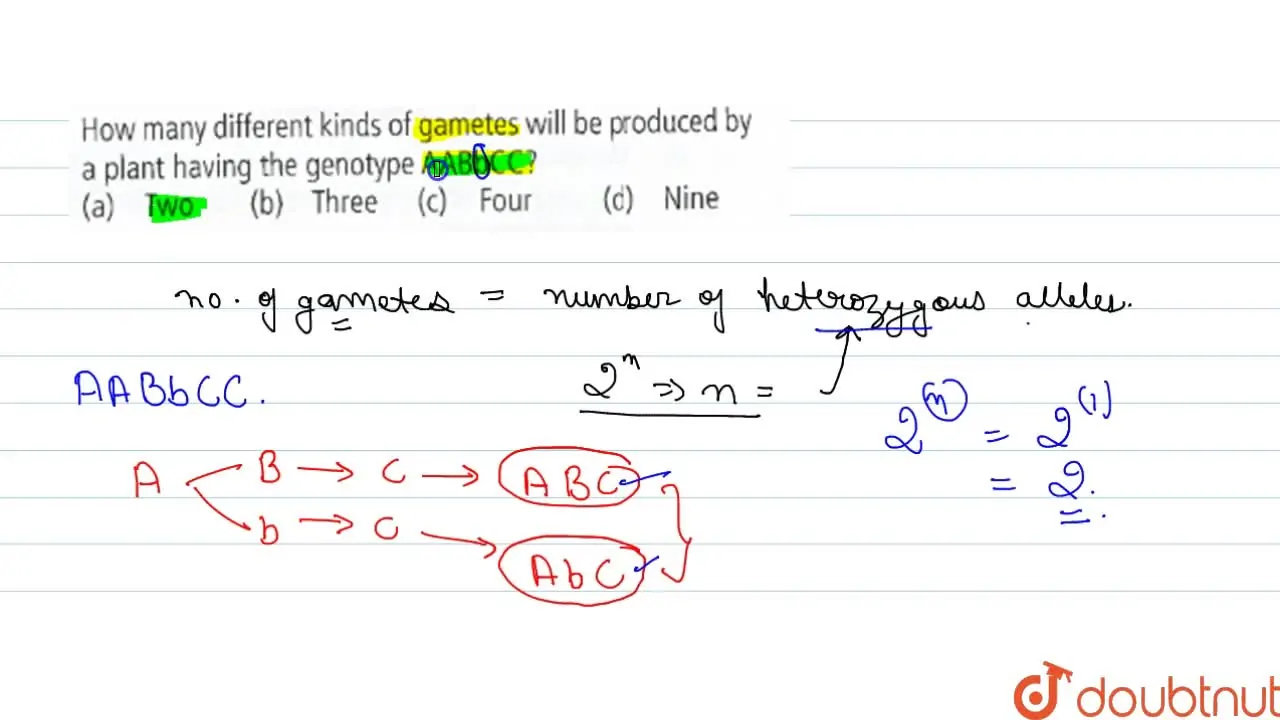 How many different kinds of gametes will be produced by
a plant having the genotype AABbCC?
(a) Two (b) Three (c) Four (d) Nine
no. of gametes = number of heterozygous alleles.
2ⁿ ⇒ n =
AABbCC.
2⁽ⁿ⁾ = 2⁽¹⁾
= 2.
A B → C → ABC
b → C → AbC
doubtnut